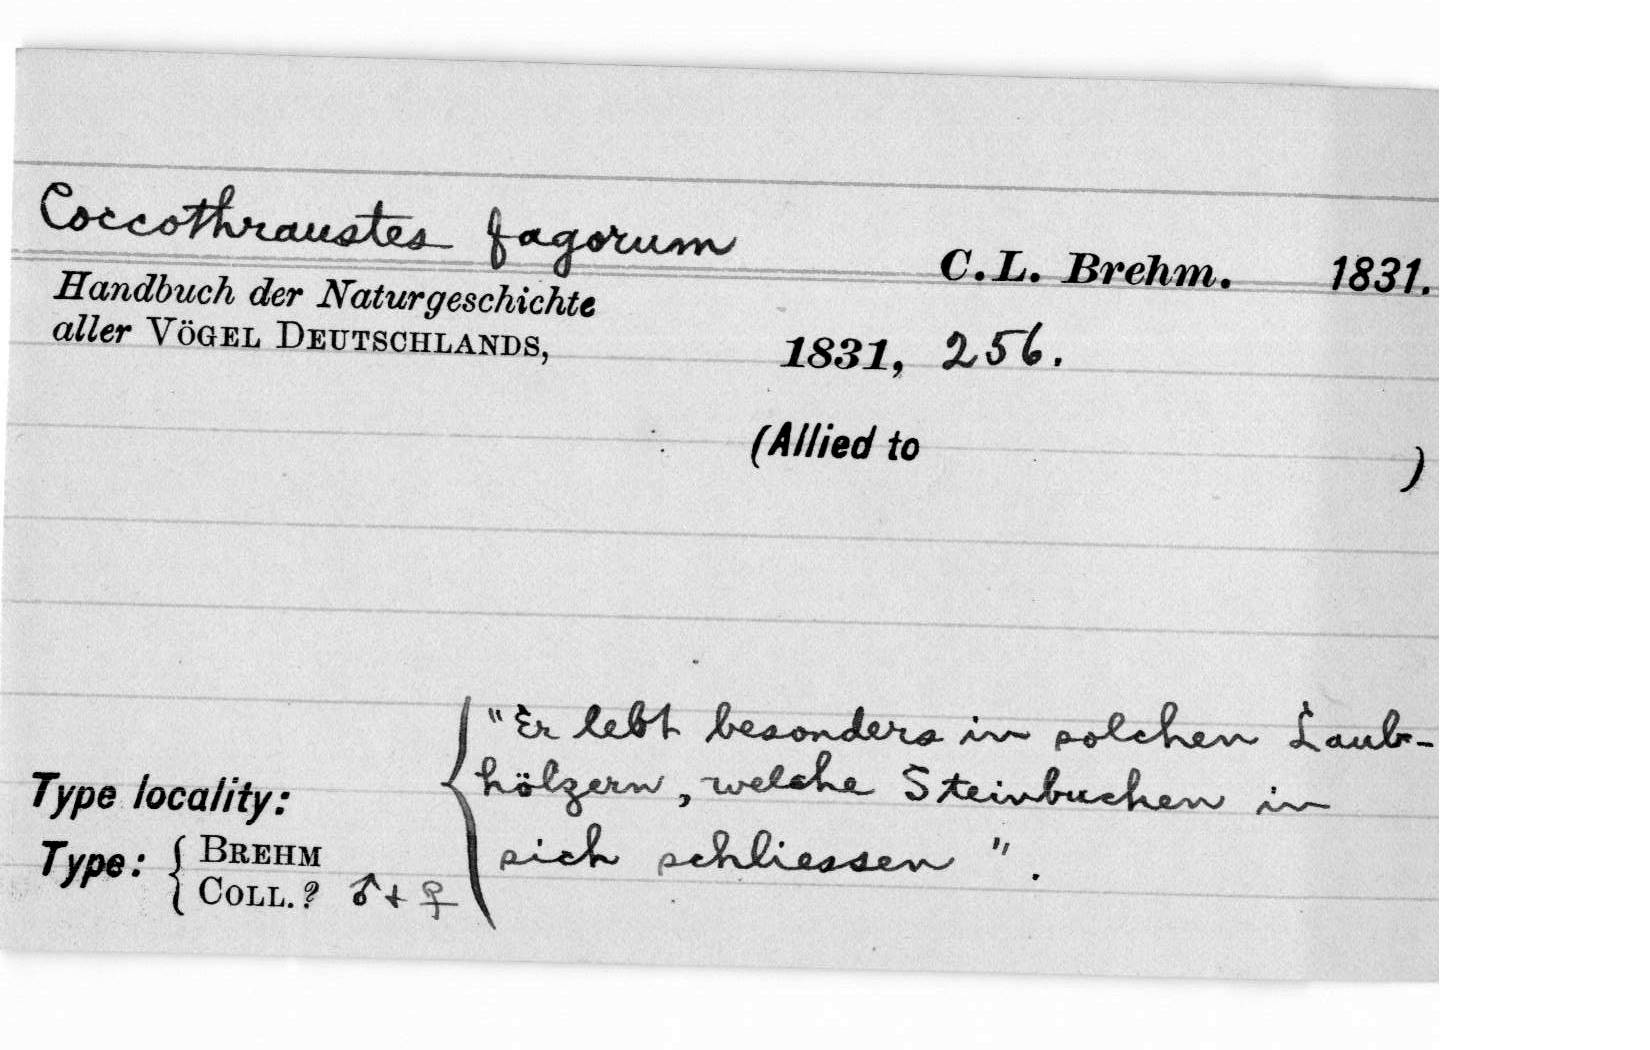 Coccothraustes fagorum C.L. Brehm. 1831.
Handbuch der Naturgeschichte
aller VÖGEL DEUTSCHLANDS, 1831, 256.
(Allied to )
"Er lebt besonders in solchen Laub-
hölzern, welche Steinbuchen in
sich schliessen".
Type locality:
Type: { BREHM
COLL.? ♂ + ♀